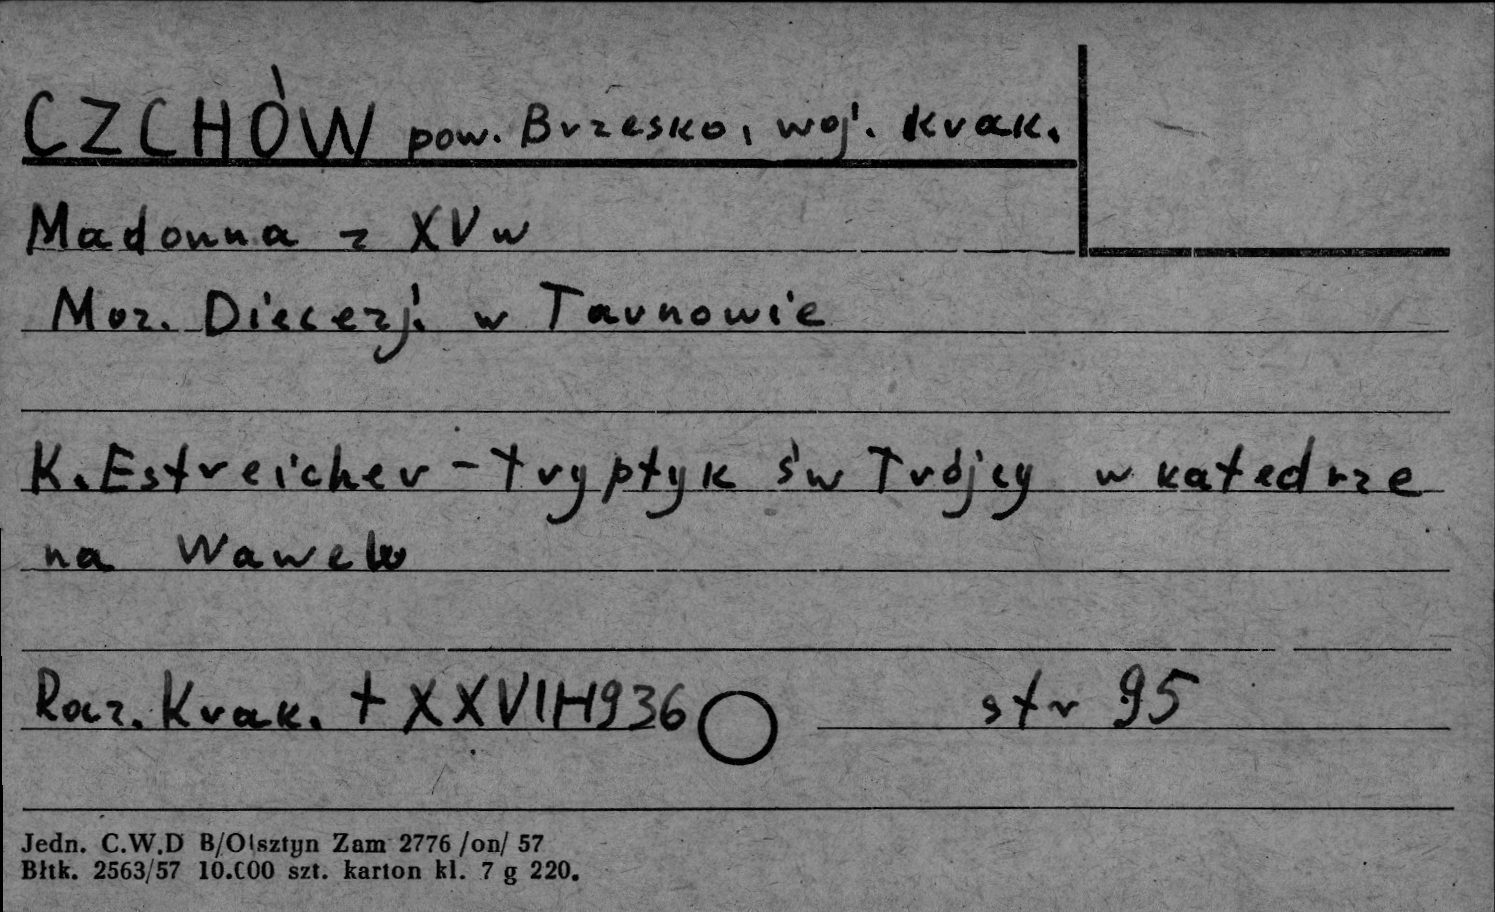 CZCHÓW pow. Brzesko, woj. Krak.
Madonna z XV w
Muz. Diecezj. w Tarnowie
K. Estreicher - tryptyk św Trójcy w katedrze
na Wawelu
Rocz. Krak. t XXVII 1936 str 95
Jedn. C.W.D B/Olsztyn Zam 2776 /on/ 57
Błtk. 2563/57 10.000 szt. karton kl. 7 g 220.